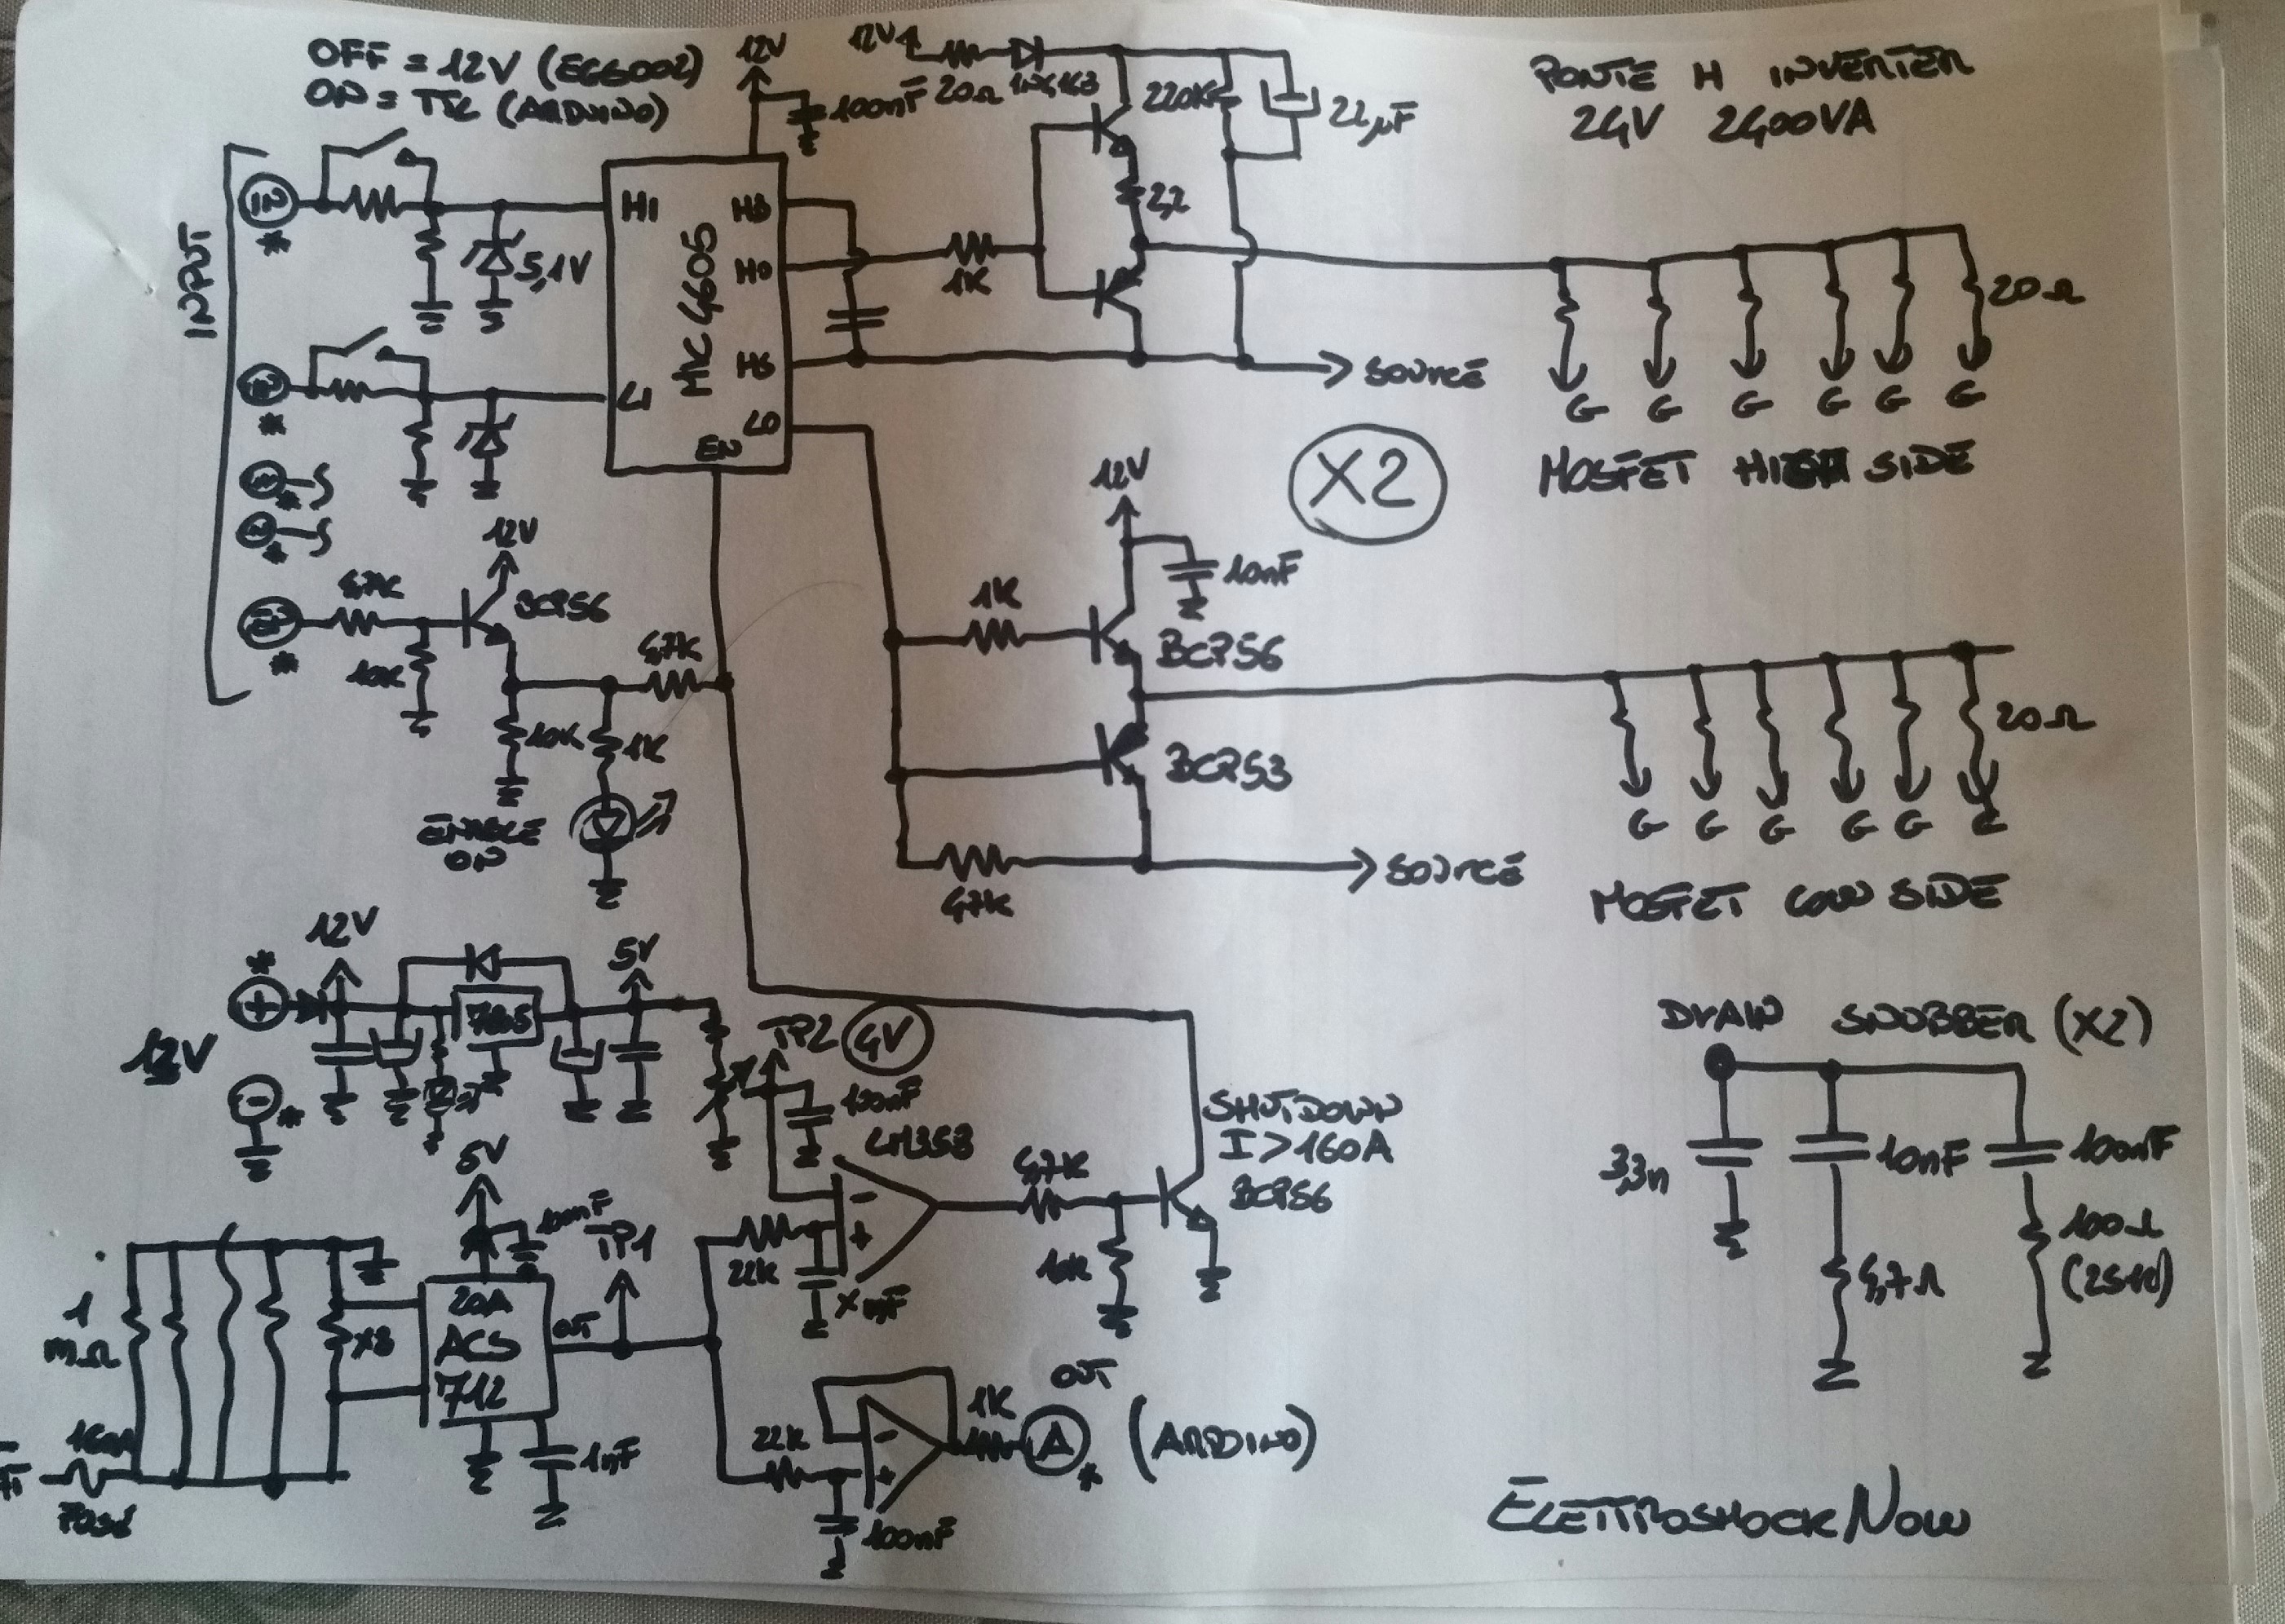 OFF = 12V (EGS002)
ON = TTL (ARDUINO)
12V
12V
100nF
20Ω
220K
22µF
PONTE H INVERTER
24V 2400VA
INPUT
IN
*
5,1V
HI
HB
HO
HS
LI
LO
EN
MIC4605
1K
2,2
20Ω
SOURCE
G G G G G G
MOSFET HIGH SIDE
X2
IN
*
IN
*
IN
*
12V
4,7K
BCP56
10K
*
4,7K
10K
1K
ENABLE
ON
12V
10nF
1K
BCP56
BCP53
47K
SOURCE
20Ω
G G G G G G
MOSFET LOW SIDE
12V
*
+
12V
-
*
7805
5V
TP2
4V
100nF
LM358
-
+
22K
4,7K
10K
SHUTDOWN
I>160A
BCP56
DRAIN SNUBBER (X2)
3,3n
10nF
100nF
4,7Ω
100Ω
5V
100nF
TP1
1
mΩ
X8
20A
ACS
712
OUT
1nF
22K
-
+
100nF
1K
OUT
A
*
(ARDUINO)
ELETTROSHOCKNOW